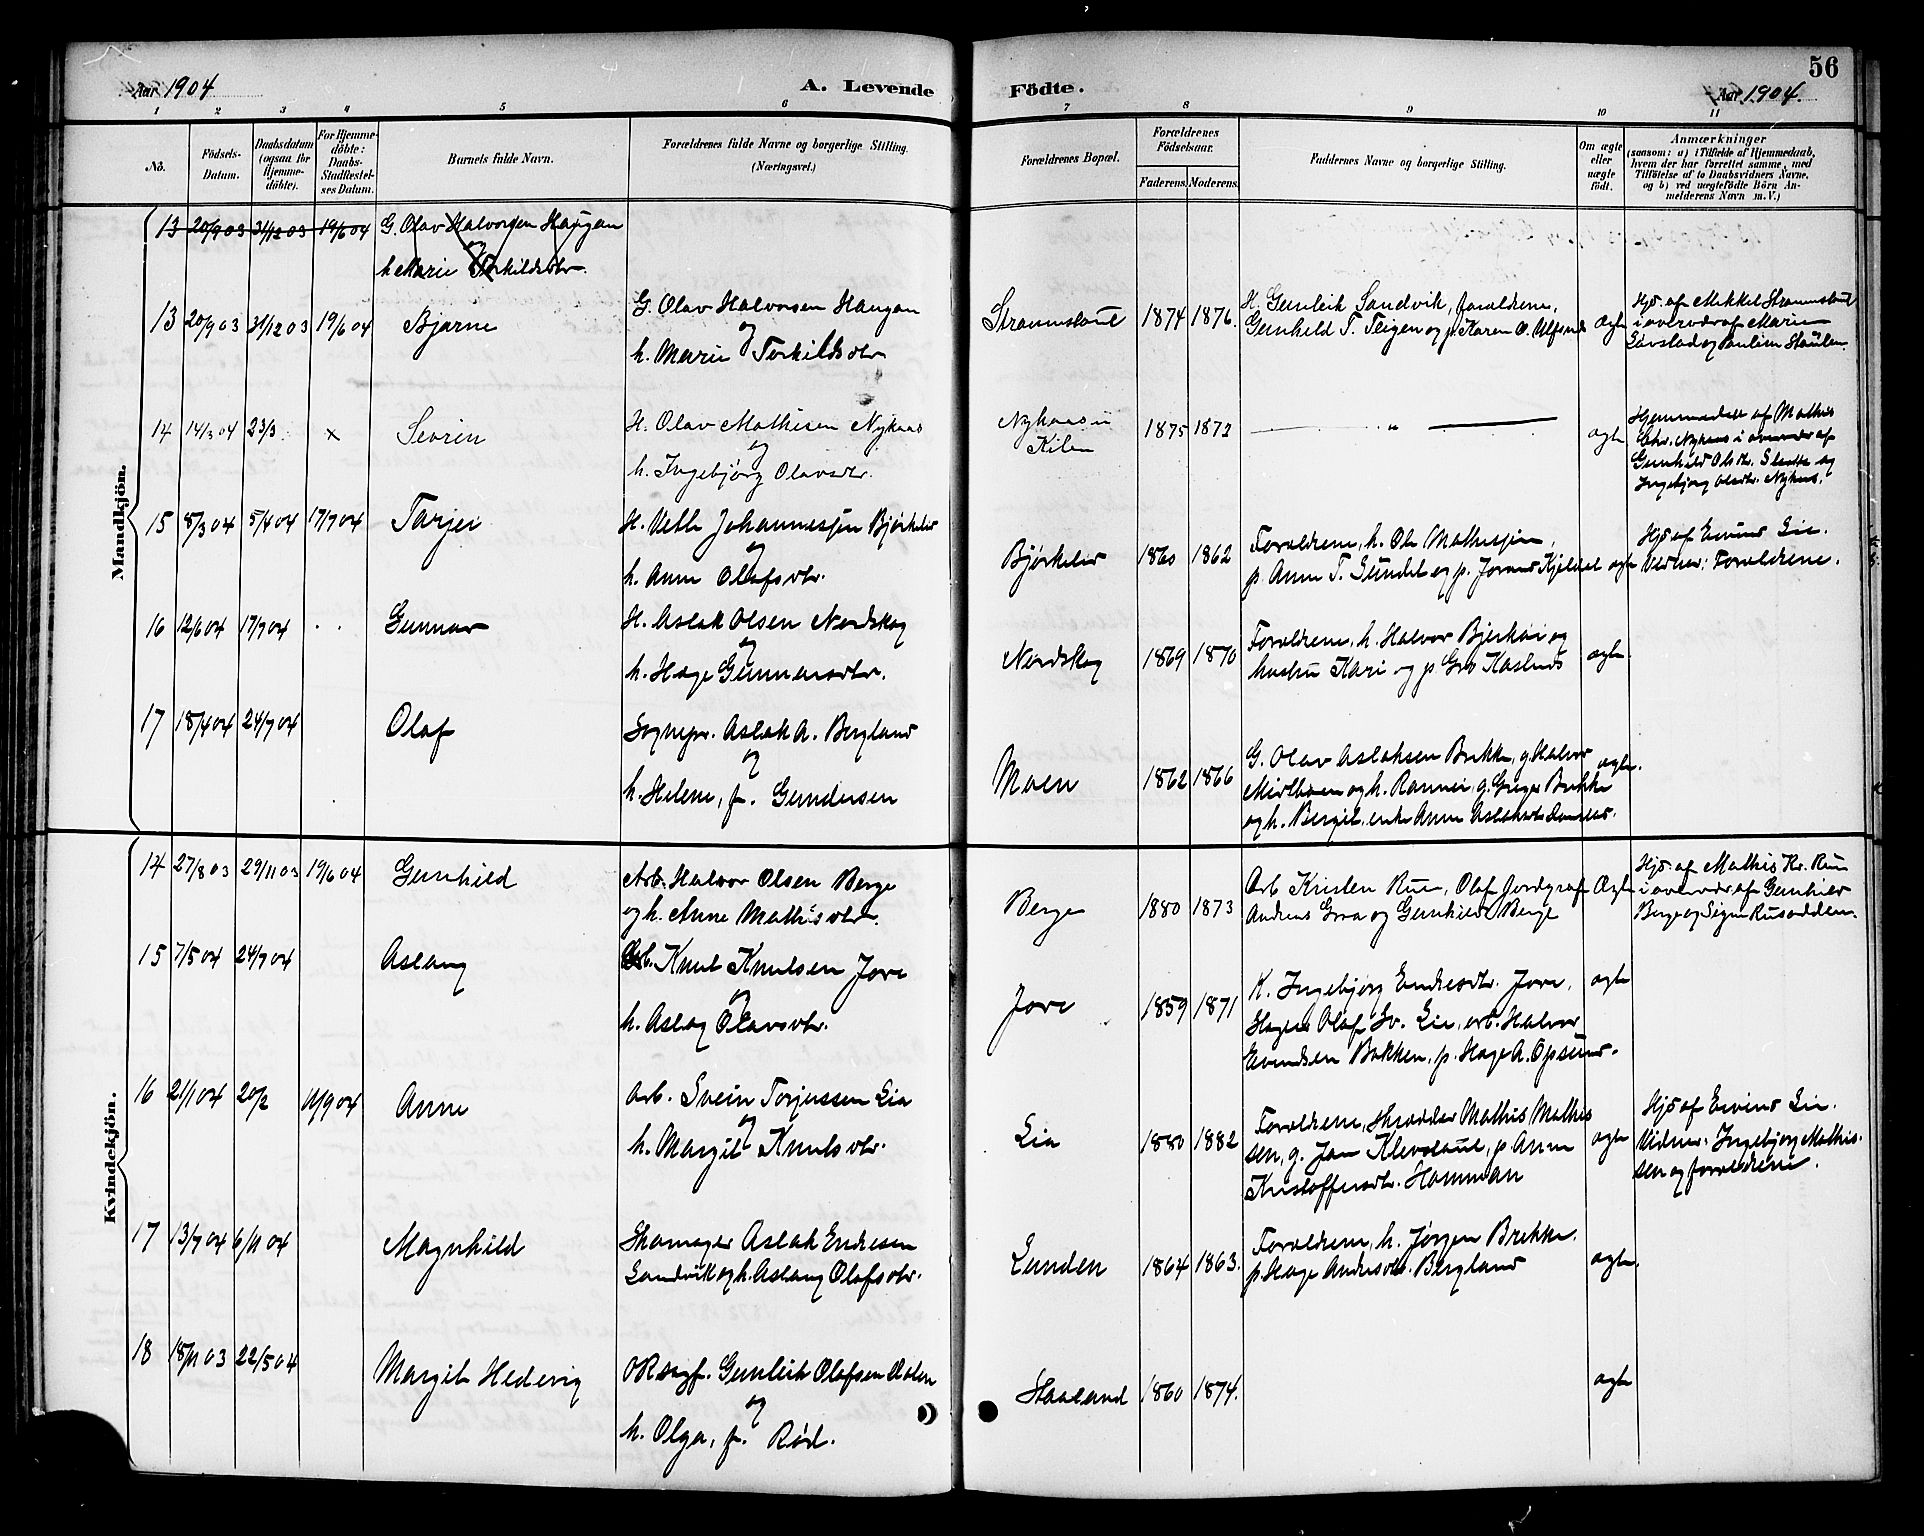 56
Aar 1904
A. Levende
Födte.
Aar 1904.
1 2 3 4 5 6 7 8 9 10 11
No.
Födsels-Datum.
Daabsdatum (ogsaa for Hjemme-döbte).
For Hjemme-döbte: Daabs-Stadfestel-ses Datum.
Barnets fulde Navn.
Forældrenes fulde Navne og borgerlige Stilling. (Næringsvei.)
Forældrenes Bopæl.
Forældrenes Födselsaar.
Faderens. Moderens.
Faddernes Navne og borgerlige Stilling.
Om ægte eller uægte födt.
Anmærkninger
(saasom: a) i Tilfælde af Hjemmedaab,
hvem der har forrettet samme, med
Tilföielse af to Daabsvidners Navne,
og b) ved uægtefödte Börn An-
melderens Navn m.V.)
Mandkjön.
13 20/9 03 31/12 03 19/6 04 G. Olav Halvorsen Haugan
og
h. Marie Torkildsdtr.
13 20/9 03 31/12 03 19/6 04 Bjarne
G. Olav Halvorsen Haugan
og
h. Marie Torkildsdtr
Straumstaul 1874 1876.
H. Gunleik Sandvik, forældrene,
Gunhild T. Teigen og p. Karen O. Ulfsund
ægte
Hjd. af Mikkel Straumstaul
i overvær af Marie
Løvstad og Pauline Staulen.
14 14/3 04 23/3 x Severin
H. Olav Mathisen Nykaas
og
h. Ingebjørg Olavsdtr.
Nykaas i
Kilen
1875 1872
"
ægte
Hjemmedøbt af Mathis
Chr. Nykaas i overvær af
Gunhild Olsdtr. Slaatta og
Ingebjørg Olsdtr. Nykaas.
15 8/3 04 5/4 04 17/7 04 Tarjei
H. Vetle Johannessen Bjørkelid
og
h. Anne Olafsdtr.
Bjørkelid 1860 1862
Forældrene, h. Ole Mathissen,
p. Anne T. Gundel og p. Joran Kjeldal
ægte
Hjd af Eivind Lie.
Vidner: Forældrene.
16 12/6 04 17/7 04 . . Gunnar
H. Aslak Olsen Nordskog
og
h. Hæge Gunnarsdtr.
Nordskog 1869 1870
Forældrene, h. Halvor Bjerkøi og
hustru Kari og p Gro Kaslund
ægte.
17 18/4 04 24/7 04 Olaf
Sognepr. Aslak A. Bergland
og
h. Helene, f. Gundersen
Moen 1862 1866
G. Olav Aslaksen Brekke, g. Halvor
Midtbøen og h. Rannei, g. Greger Brekke
og h. Bergit, enke Anne Aslaksdtr
ægte.
Kvindekjön.
14 27/8 03 29/11 03 19/6 04 Gunhild
Arb. Halvor Olsen Berge
og h. Anne Mathisdtr.
Berge 1880 1873
Arb Kristen Rue, Olaf Jordgraf
Andreas Graa og Gunhild Berge
Ægte
Hjd. af Mathis Kr. Rue
i overvær af Gunhild
Berge og Signe Rusodden.
15 7/5 04 24/7 04 Aslaug
Arb. Knut Knutsen Jore
og
h. Aslog Olavsdtr.
Jore 1859 1871
K. Ingebjørg Endresdtr. Jore,
Olaf Sv. Lie, arb. Halvor
Eivindsen Bakken, p. Hæge A. Opsund.
ægte
16 21/1 04 20/2 11/9 04 Anne
Arb. Svein Torjussen Lia
og
h. Margit Knutsdtr.
Lia 1880 1882
Forældrene, Skrædder Mathis Mathis
sen, g. Jan Klevstaul, p Anne
Kristoffersdtr. Hommdan
ægte
Hjd af Eivind Lie.
Vidner: Ingebjørg Mathis-
sen og forældrene.
17 13/7 04 6/11 04 Magnhild
Skomager Aslak Endresen
Sandvik og h. Aslaug Olafsdtr.
Lunden 1864 1863.
Forældrene, h. Jørgen Brekke.
p. Hæge Andersdtr. Bergland
ægte.
18 18/11 03 22/5 04 Margit Hedevig
Gunleik Olafsen
og
h. Olga, f. Rød.
Haaland 1860 1874.
ægte